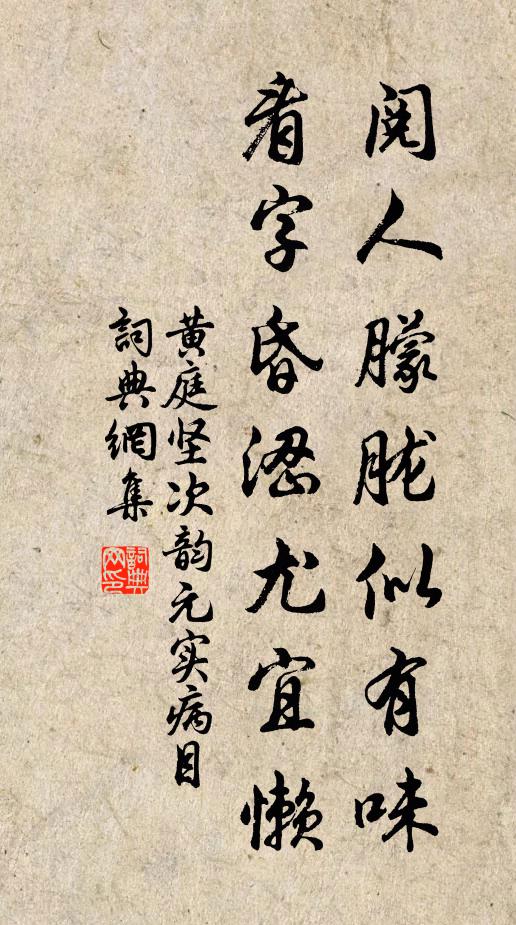 阅人朦胧似有味
看字昏涩尤宜懒
黄庭坚次韵元实病目
詞典網集
詞典网印